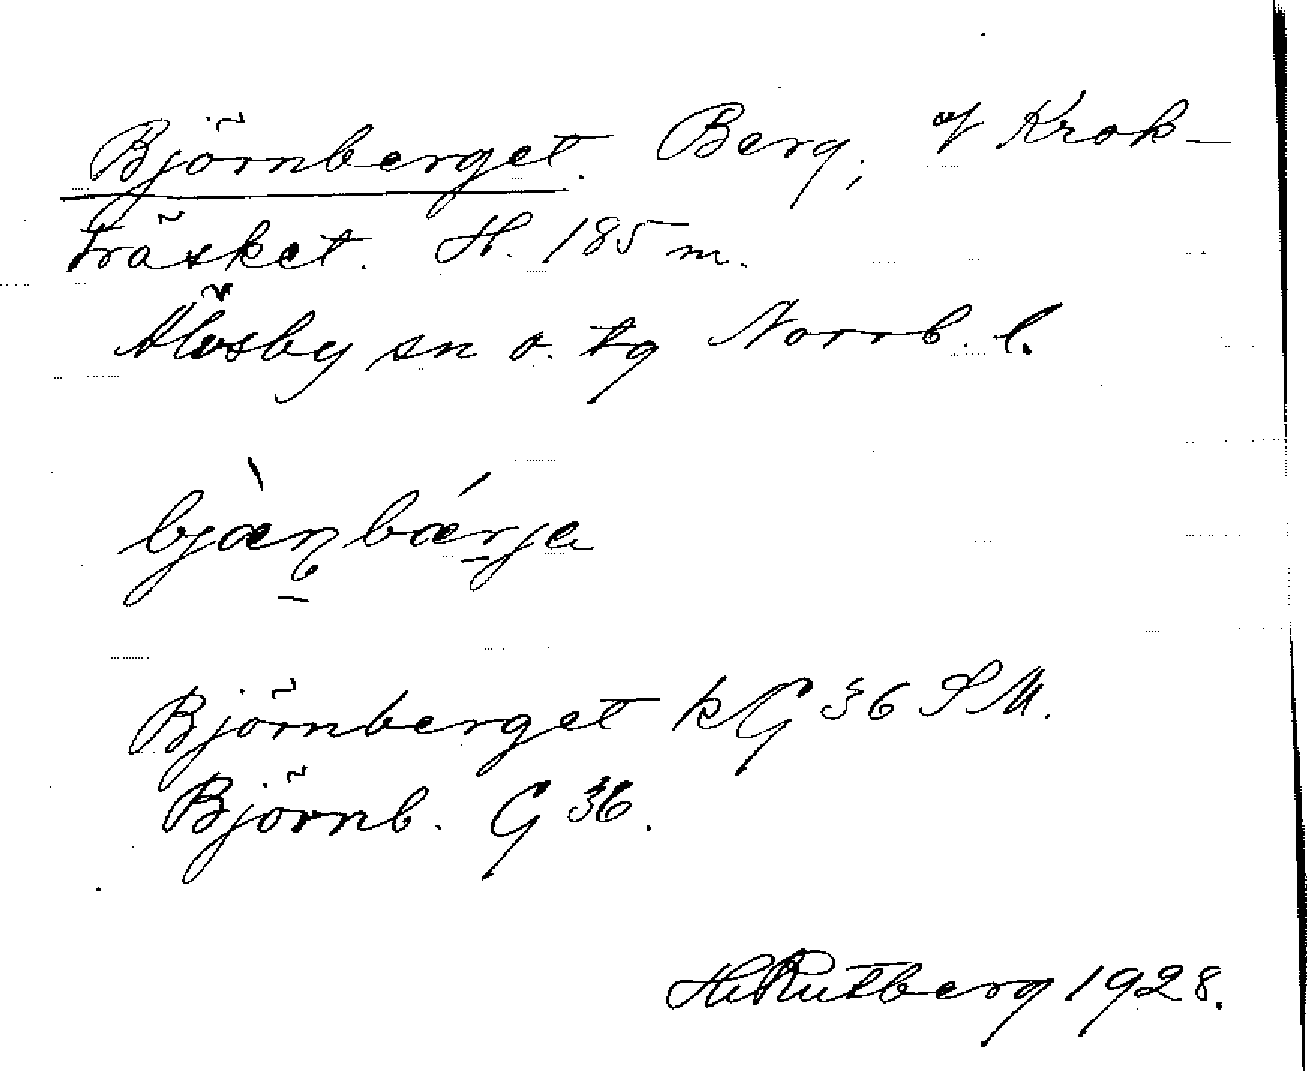 Björnberget. Berg, af Krok-
träsket. H. 185 m.
Älvsby sn o. tg Norrb. l.
bjæ̀ɳbǽrja
Björnberget kG 36 S M.
Björnb. G 36.
H. Rutberg 1928.